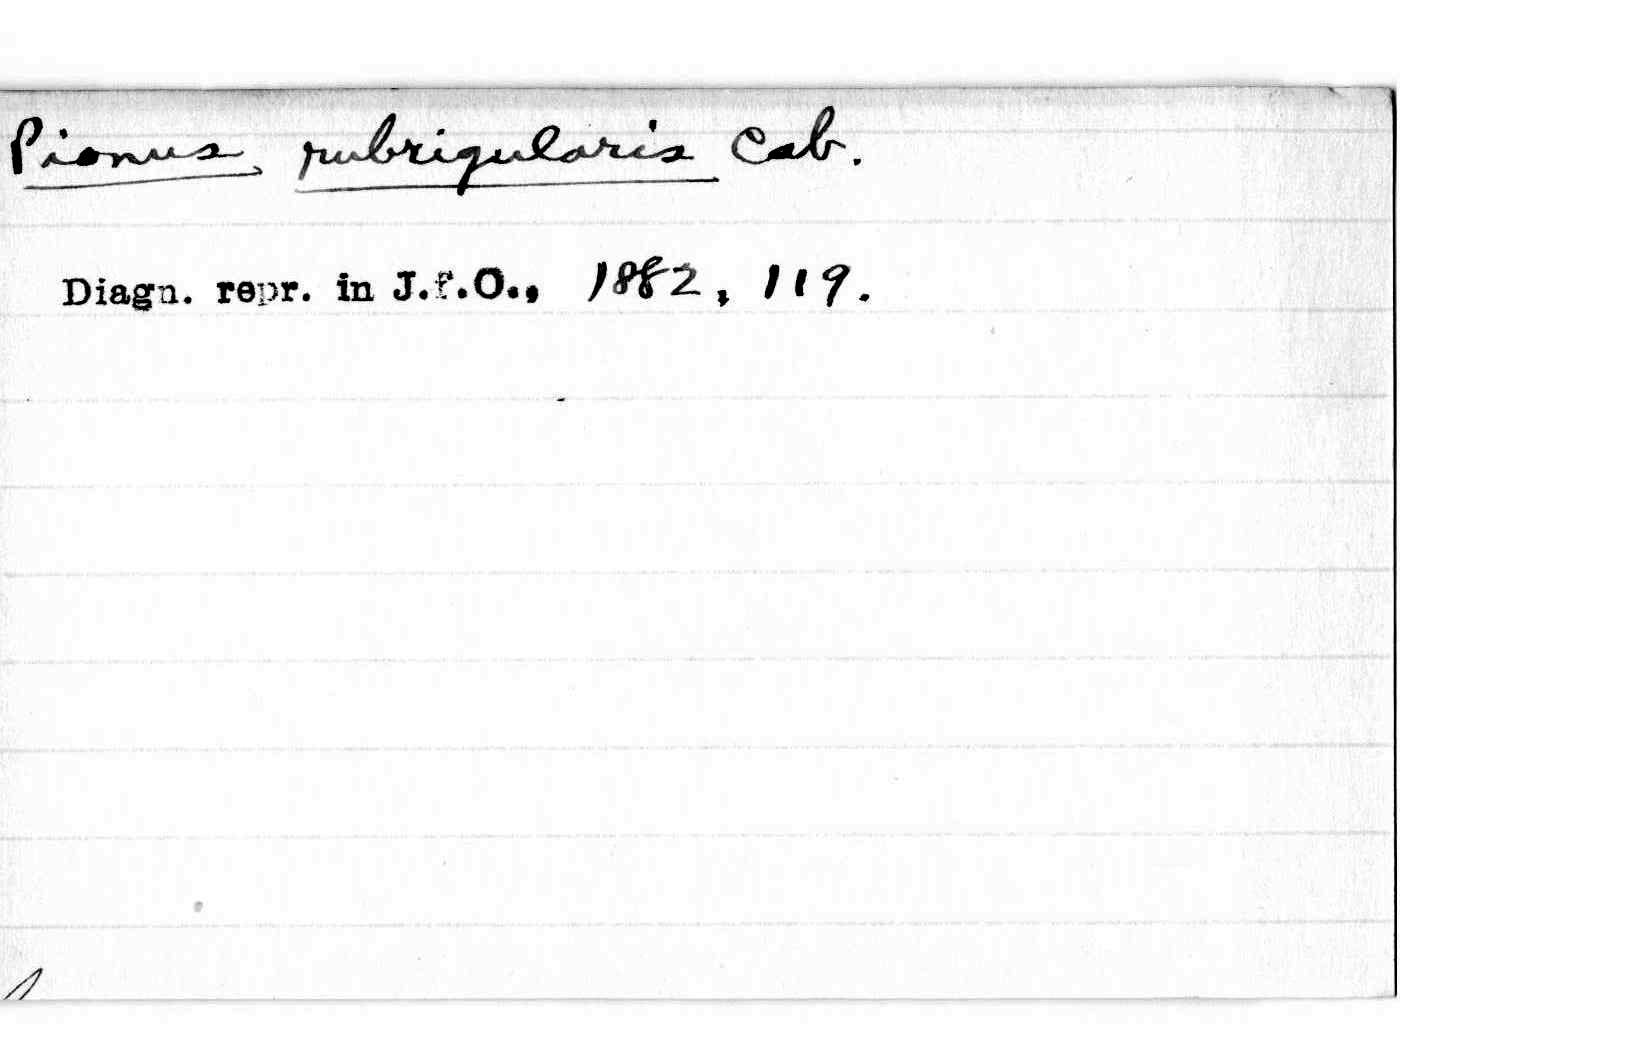 Pionus rubrigularis Cab.
Diagn. repr. in J.f.O., 1882, 119.